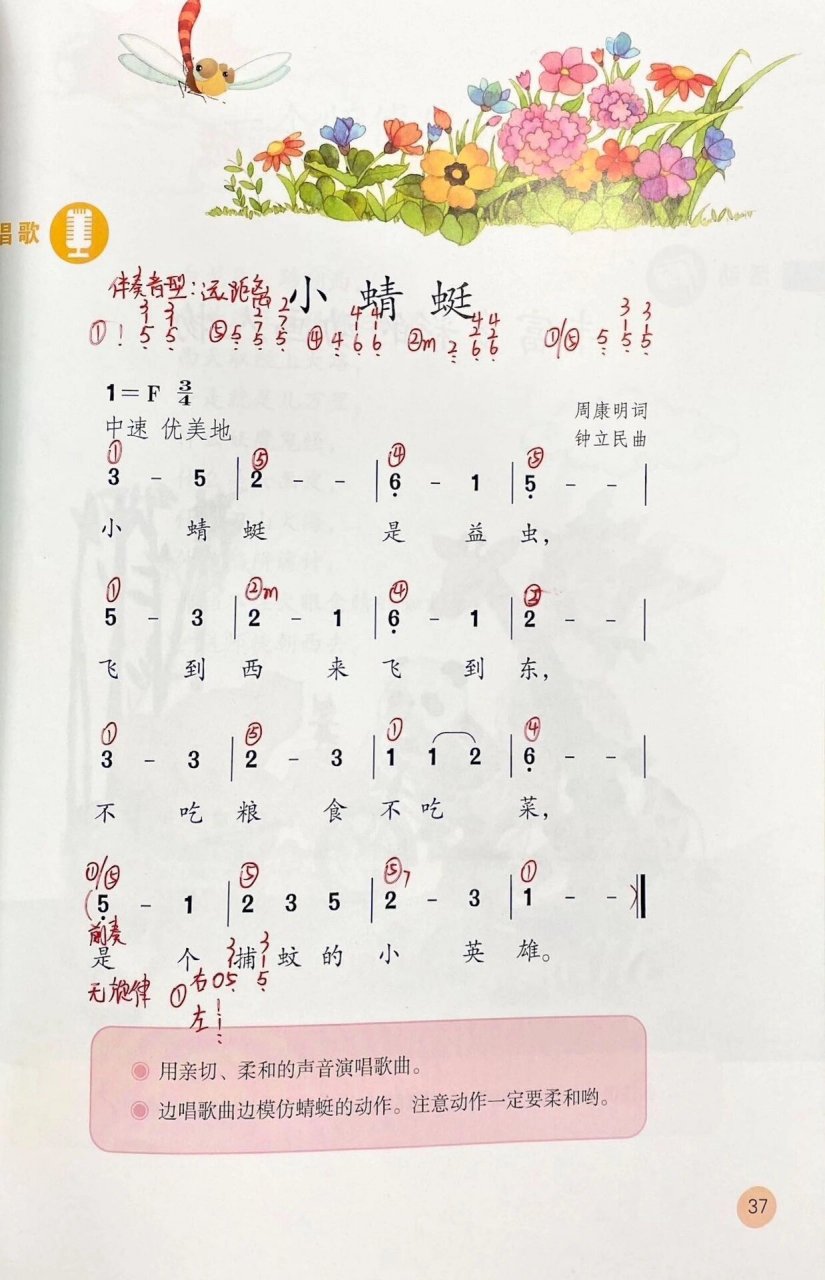 唱歌
伴奏音型:远距离
小 蜻 蜓
3 3 2 2 4 4 4 4 3 3
1 1 7 7 1 1 2 2 1 1
① 1 5 5 ⑤ 5 5 5 ④ 4 6 6 ②m 2 6 6 ①/⑤ 5 5 5
1=F 3/4
中速 优美地
周康明词
钟立民曲
① ⑤ ④ ⑤
3 – 5 | 2 – – | 6̣ – 1 | 5̣ – – |
小 蜻 蜓 是 益 虫,
① ②m ④
5 – 3 | 2 – 1 | 6̣ – 1 | 2 – – |
飞 到 西 来 飞 到 东,
① ⑤ ① ④
3 – 3 | 2 – 3 | 1 1 2 | 6̣ – – |
不 吃 粮 食 不 吃 菜,
①/⑤ ⑤ ⑤7 ①
(5̣ – 1 | 2 3 5 | 2 – 3 | 1 – –) ‖
前奏
是 个 捕 蚊 的 小 英 雄。
3 3
1 1
无旋律 ① 右 0 5 5
左 1
用亲切、柔和的声音演唱歌曲。
边唱歌曲边模仿蜻蜓的动作。注意动作一定要柔和哟。
37